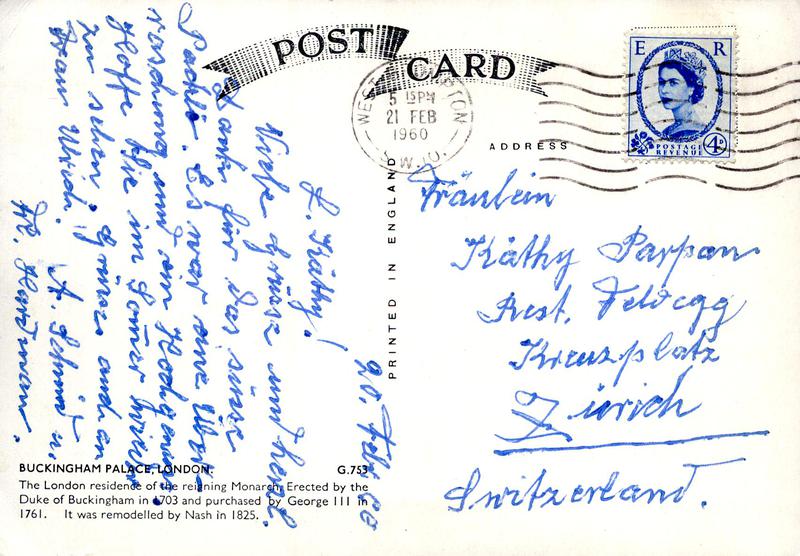 POST CARD
WEST TON
5 15 PM
21 FEB
1960
W.10.
E R
POSTAGE
REVENUE
4D
ADDRESS
PRINTED IN ENGLAND
20. Feb. 60
L. Käthy!
Viele Grüsse und herzl.
Dank für das süsse
Päckli. Es war eine Über
raschung und ein Hochgenuss
Hoffe Sie im
zu sehen. Grüsse auch an
Frau Ulrich. A. Schmid u.
Fräulein
Käthy Parpan
Rest. Feldegg
Kreuzplatz
Zürich
Switzerland.
BUCKINGHAM PALACE, LONDON. G.753
The London residence of the reigning Monarch. Erected by the
Duke of Buckingham in 1703 and purchased by George III in
1761. It was remodelled by Nash in 1825.